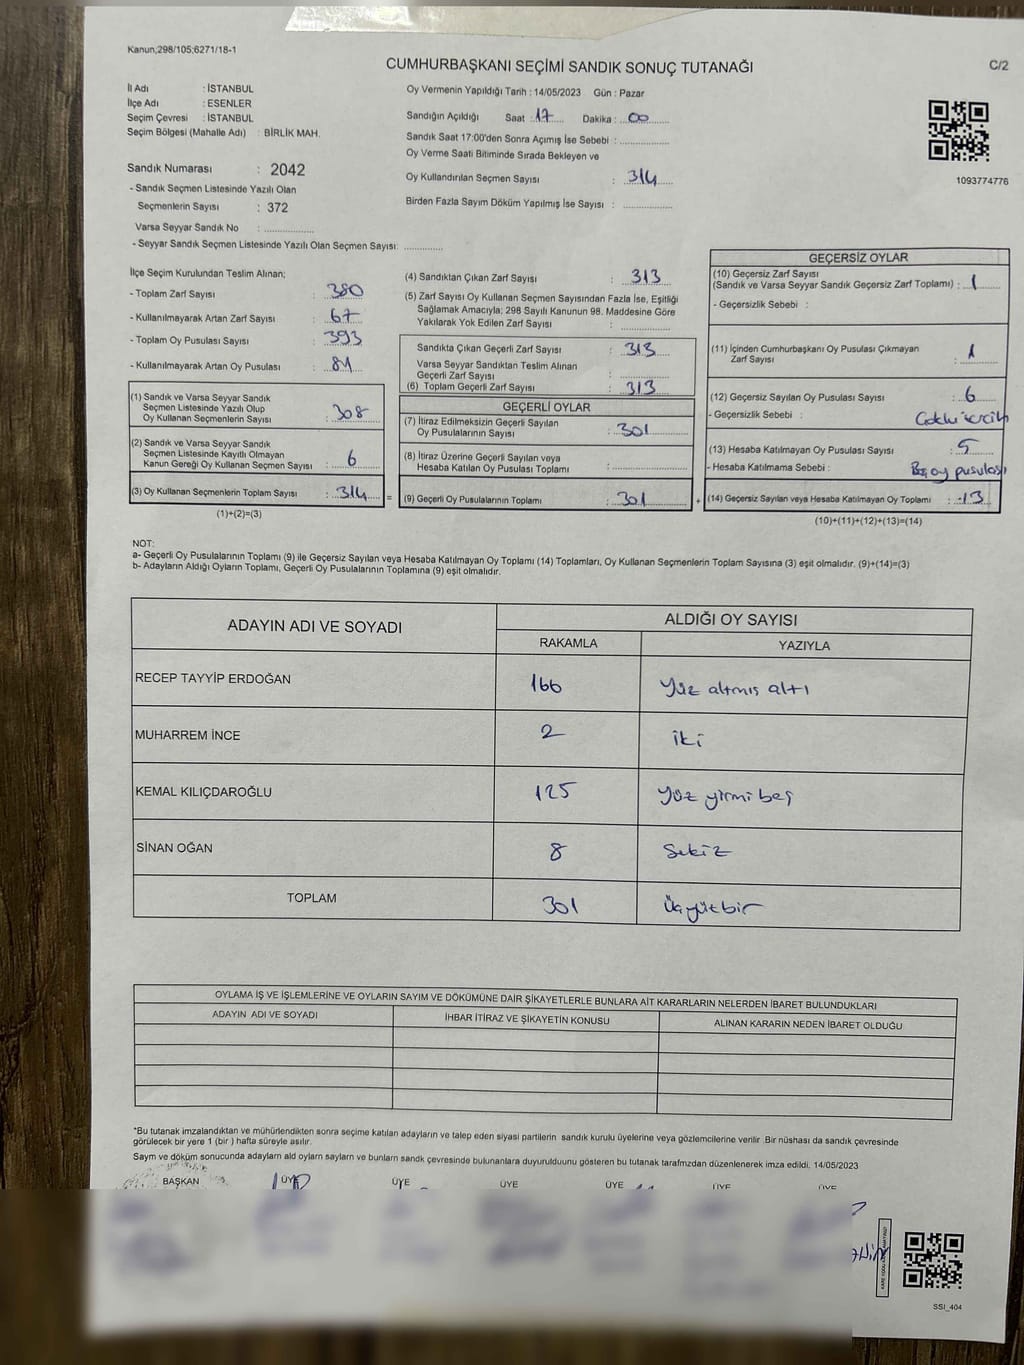 Kanun;298/105;6271/18-1
CUMHURBAŞKANI SEÇİMİ SANDIK SONUÇ TUTANAĞI
C/2
İl Adı : İSTANBUL
İlçe Adı : ESENLER
Seçim Çevresi : İSTANBUL
Seçim Bölgesi (Mahalle Adı) : BİRLİK MAH.
Sandık Numarası : 2042
- Sandık Seçmen Listesinde Yazılı Olan
Seçmenlerin Sayısı : 372
Varsa Seyyar Sandık No : ..............
- Seyyar Sandık Seçmen Listesinde Yazılı Olan Seçmen Sayısı: ............
Oy Vermenin Yapıldığı Tarih : 14/05/2023 Gün : Pazar
Sandığın Açıldığı Saat : 17 Dakika : 00
Sandık Saat 17:00'den Sonra Açımış İse Sebebi : ..............
Oy Verme Saati Bitiminde Sırada Bekleyen ve
Oy Kullandırılan Seçmen Sayısı : 314
Birden Fazla Sayım Döküm Yapılmış İse Sayısı : ..............
1093774776
İlçe Seçim Kurulundan Teslim Alınan;
- Toplam Zarf Sayısı : 380
- Kullanılmayarak Artan Zarf Sayısı : 67
- Toplam Oy Pusulası Sayısı : 393
- Kullanılmayarak Artan Oy Pusulası : 81
(1) Sandık ve Varsa Seyyar Sandık
Seçmen Listesinde Yazılı Olup
Oy Kullanan Seçmenlerin Sayısı : 308
(2) Sandık ve Varsa Seyyar Sandık
Seçmen Listesinde Kayıtlı Olmayan
Kanun Gereği Oy Kullanan Seçmen Sayısı : 6
(3) Oy Kullanan Seçmenlerin Toplam Sayısı : 314 =
(1)+(2)=(3)
(4) Sandıktan Çıkan Zarf Sayısı : 313
(5) Zarf Sayısı Oy Kullanan Seçmen Sayısından Fazla İse, Eşitliği
Sağlamak Amacıyla; 298 Sayılı Kanunun 98. Maddesine Göre
Yakılarak Yok Edilen Zarf Sayısı : ..............
Sandıkta Çıkan Geçerli Zarf Sayısı : 313
Varsa Seyyar Sandıktan Teslim Alınan
Geçerli Zarf Sayısı : ..............
(6) Toplam Geçerli Zarf Sayısı : 313
GEÇERLİ OYLAR
(7) İtiraz Edilmeksizin Geçerli Sayılan
Oy Pusulalarının Sayısı : 301
(8) İtiraz Üzerine Geçerli Sayılan veya
Hesaba Katılan Oy Pusulası Toplamı : ..............
(9) Geçerli Oy Pusulalarının Toplamı : 301 +
GEÇERSİZ OYLAR
(10) Geçersiz Zarf Sayısı
(Sandık ve Varsa Seyyar Sandık Geçersiz Zarf Toplamı) : 1
- Geçersizlik Sebebi :
(11) İçinden Cumhurbaşkanı Oy Pusulası Çıkmayan
Zarf Sayısı : 1
(12) Geçersiz Sayılan Oy Pusulası Sayısı : 6
- Geçersizlik Sebebi :
(13) Hesaba Katılmayan Oy Pusulası Sayısı : 5
- Hesaba Katılmama Sebebi : Boş oy pusulası
(14) Geçersiz Sayılan veya Hesaba Katılmayan Oy Toplamı : 13
(10)+(11)+(12)+(13)=(14)
NOT:
a- Geçerli Oy Pusulalarının Toplamı (9) ile Geçersiz Sayılan veya Hesaba Katılmayan Oy Toplamı (14) Toplamları, Oy Kullanan Seçmenlerin Toplam Sayısına (3) eşit olmalıdır. (9)+(14)=(3)
b- Adayların Aldığı Oyların Toplamı, Geçerli Oy Pusulalarının Toplamına (9) eşit olmalıdır.
ADAYIN ADI VE SOYADI ALDIĞI OY SAYISI
RAKAMLA YAZIYLA
RECEP TAYYİP ERDOĞAN 166 Yüz altmış altı
MUHARREM İNCE 2 iki
KEMAL KILIÇDAROĞLU 125 Yüz yirmi beş
SİNAN OĞAN 8 Sekiz
TOPLAM 301 Üçyüzbir
OYLAMA İŞ VE İŞLEMLERİNE VE OYLARIN SAYIM VE DÖKÜMÜNE DAİR ŞİKAYETLERLE BUNLARA AİT KARARLARIN NELERDEN İBARET BULUNDUKLARI
ADAYIN ADI VE SOYADI İHBAR İTİRAZ VE ŞİKAYETİN KONUSU ALINAN KARARIN NEDEN İBARET OLDUĞU
*Bu tutanak imzalandıktan ve mühürlendikten sonra seçime katılan adayların ve talep eden siyasi partilerin sandık kurulu üyelerine veya gözlemcilerine verilir .Bir nüshası da sandık çevresinde
görülecek bir yere 1 (bir ) hafta süreyle asılır.
Sayım ve döküm sonucunda adayların ald oyların sayların ve bunların sandk çevresinde bulunanlara duyurulduunu gösteren bu tutanak tarafmzdan düzenlenerek imza edildi. 14/05/2023
BAŞKAN ÜYE ÜYE ÜYE ÜYE ÜYE ÜYE
SSI_404